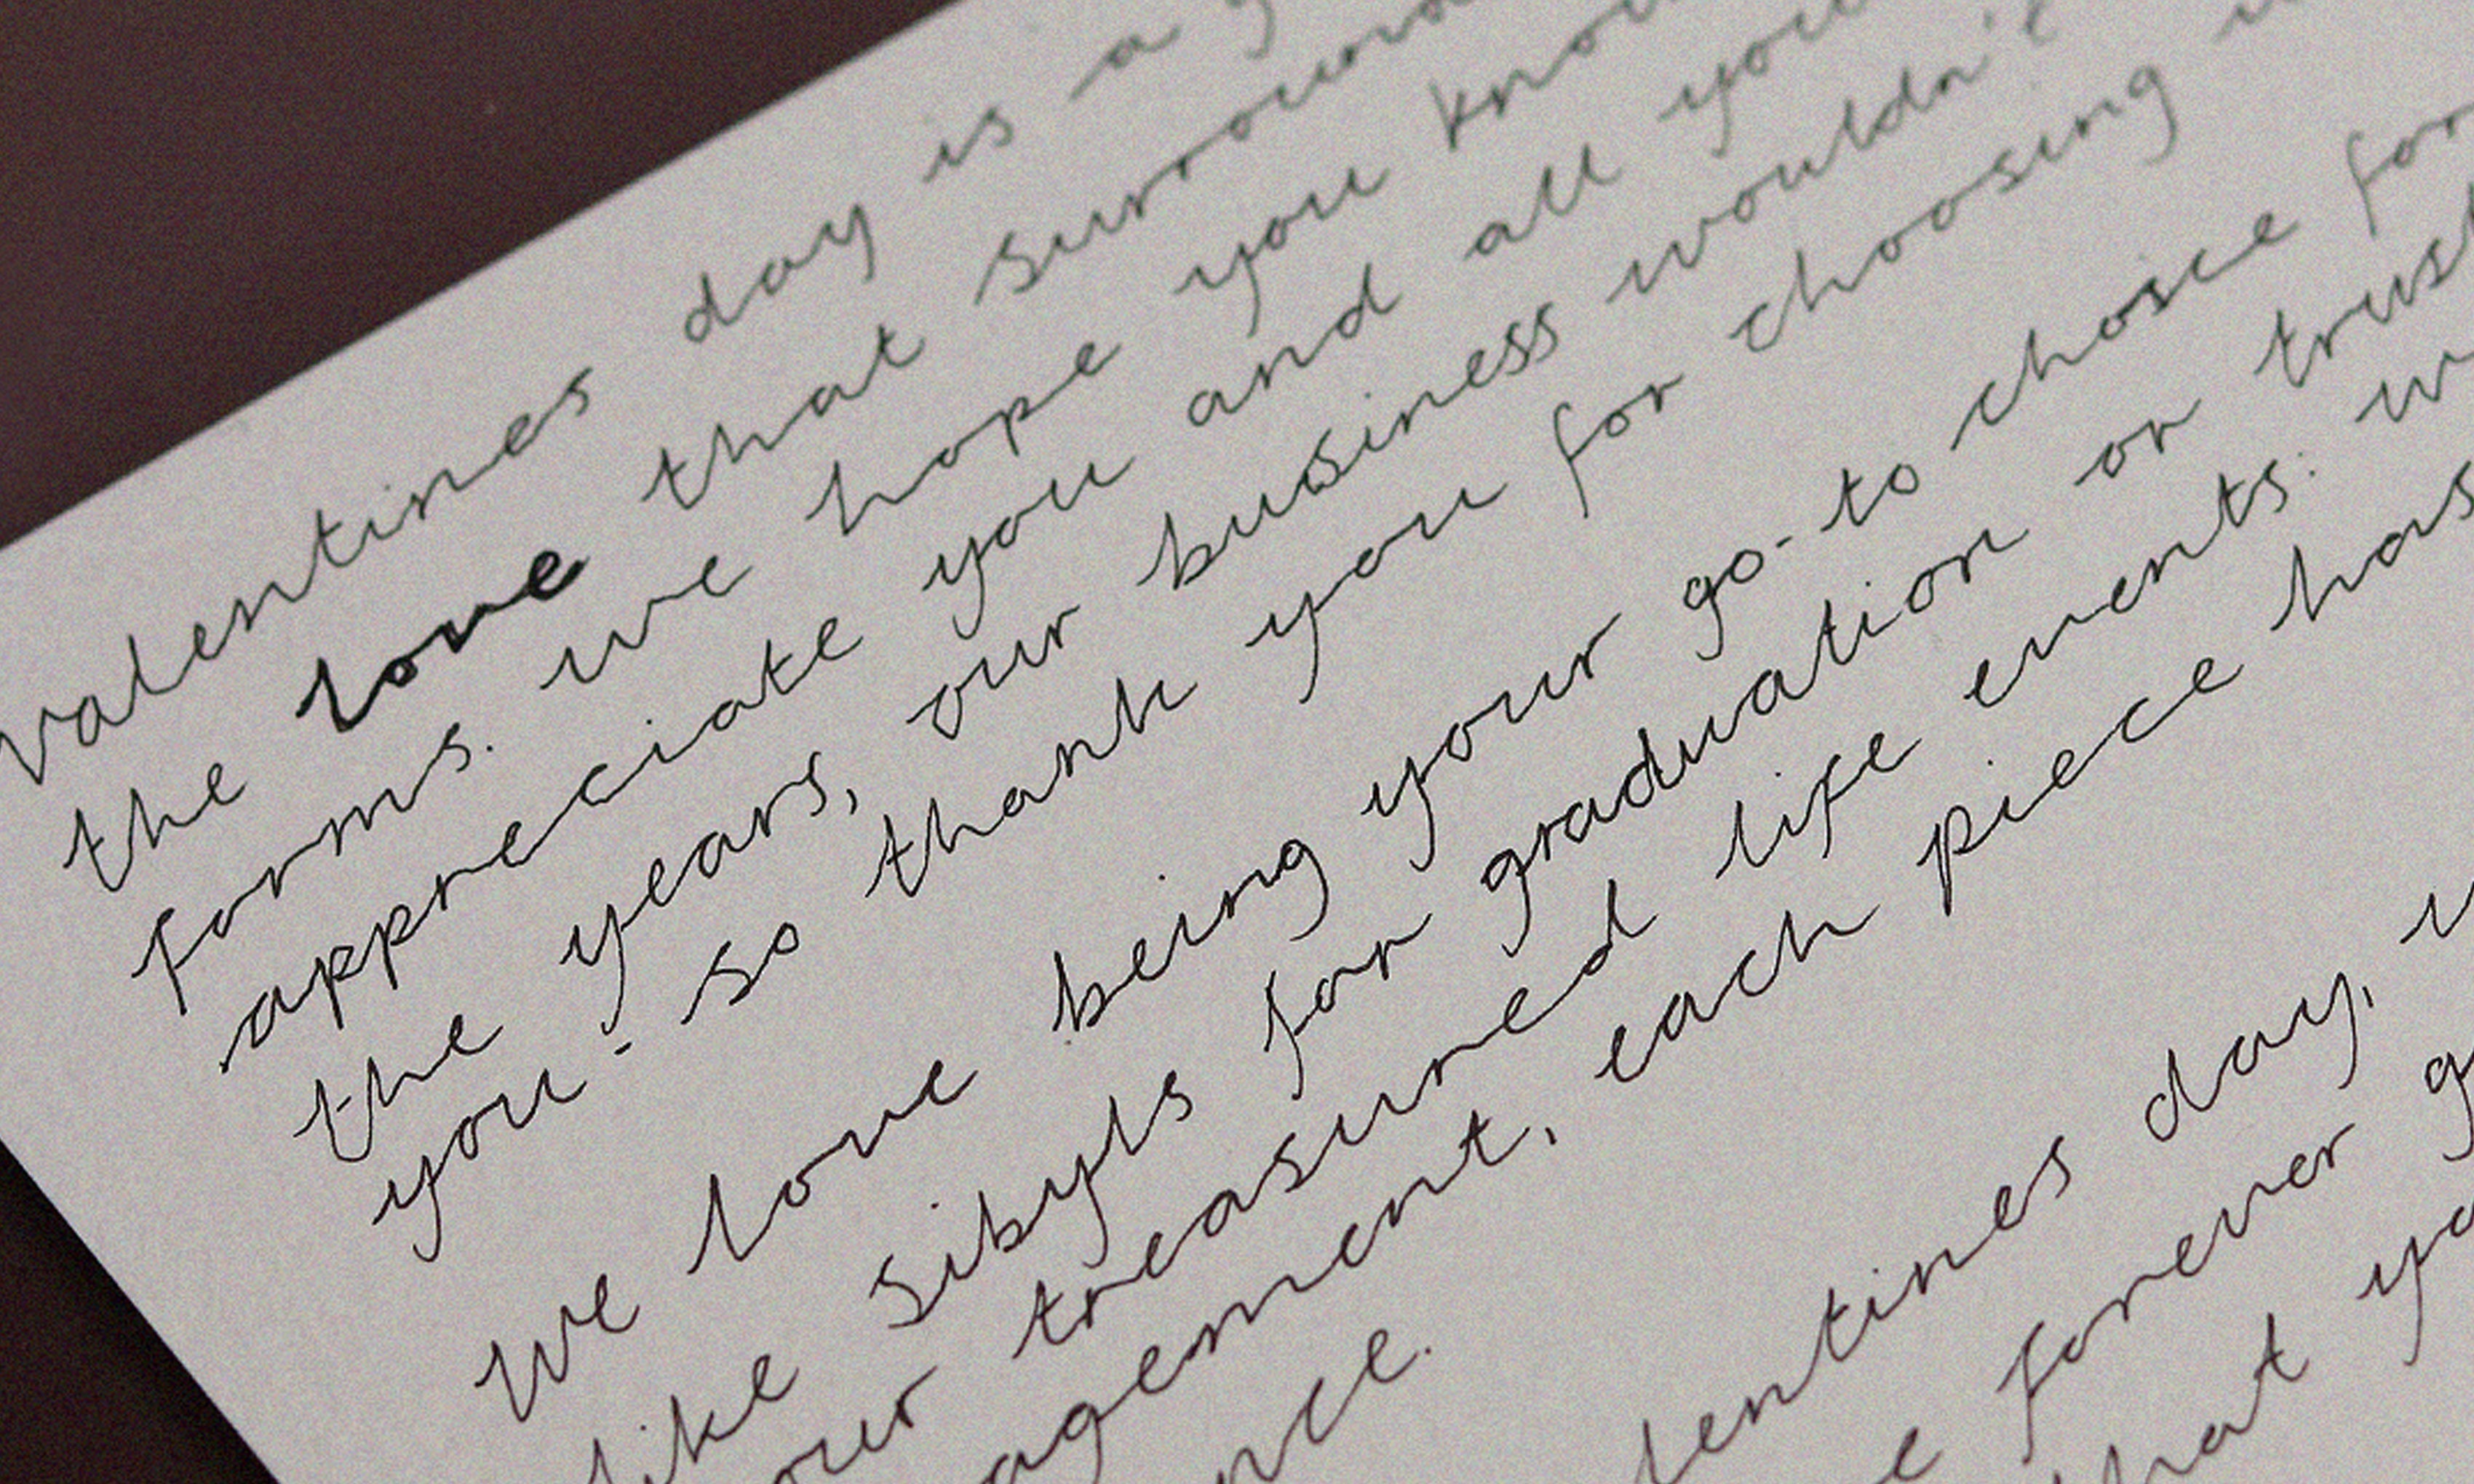 Valentines day is a
the love that
forms. we hope you know
appreciate you and all you
the years, our business wouldn't
you - so thank you for choosing
We love being your go-to choice for
like sibyls for graduation or trust
our treasured life events.
agement, each piece has
nce.
lentines day,
e forever
hat yo